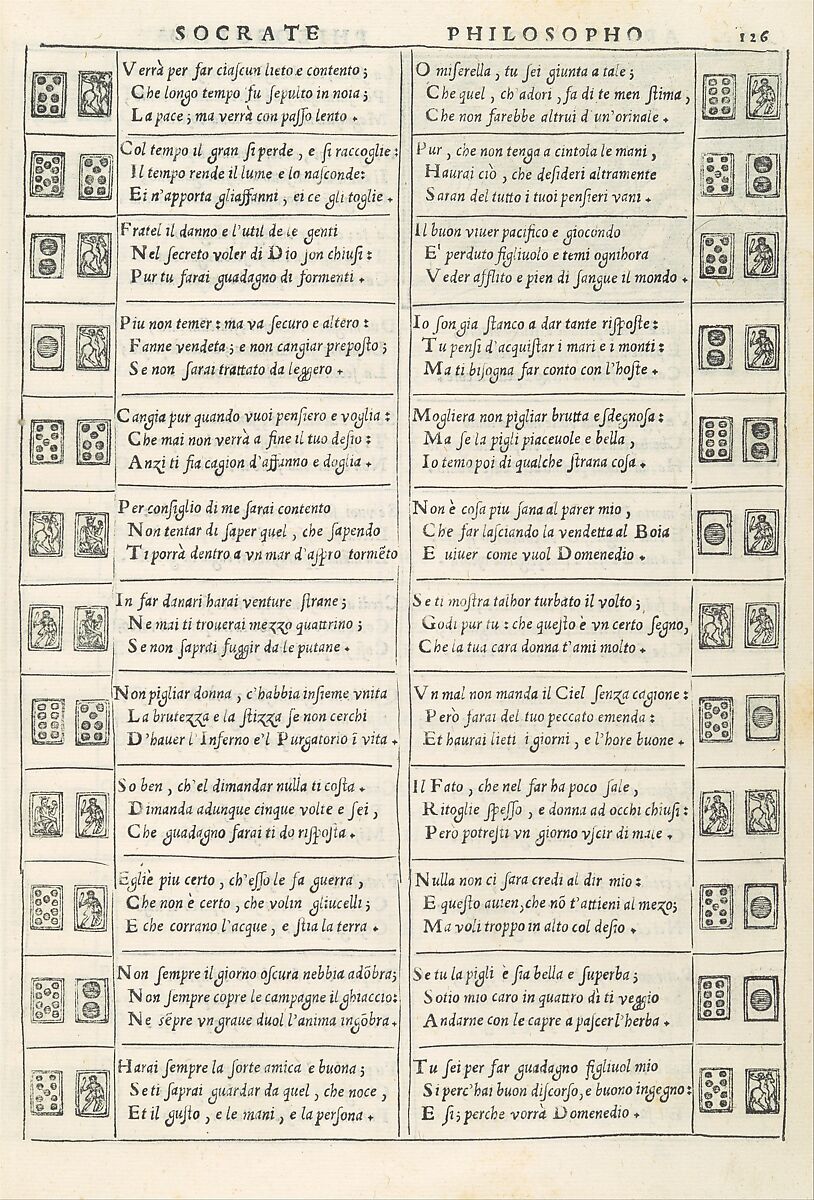 SOCRATE PHILOSOPHO 126
Verrà per far ciaſcun lieto e contento;
Che longo tempo fu ſepulto in noia;
La pace; ma verrà con paſſo lento.
Col tempo il gran ſi perde, e ſi raccoglie:
Il tempo rende il lume e lo naſconde:
Ei n'apporta gliaffanni, ei ce gli toglie.
Fratel il danno e l'util de le genti
Nel ſecreto voler di Dio ſon chiuſi:
Pur tu farai guadagno di formenti.
Piu non temer: ma va ſecuro e altero:
Fanne vendeta; e non cangiar prepoſto;
Se non ſarai trattato da leggero.
Cangia pur quando vuoi penſiero e voglia:
Che mai non verrà a fine il tuo deſio:
Anzi ti fia cagion d'affanno e doglia.
Per conſiglio di me ſarai contento
Non tentar di ſaper quel, che ſapendo
Ti porrà dentro a vn mar d'aſpro tormēto
In far danari harai venture ſtrane;
Ne mai ti trouerai mezzo quattrino;
Se non ſaprai fuggir da le putane.
Non pigliar donna, c'habbia inſieme vnita
La brutezza e la ſtizza ſe non cerchi
D'hauer l'Inferno e'l Purgatorio ī vita.
So ben, ch'el dimandar nulla ti coſta.
Dimanda adunque cinque volte e ſei,
Che guadagno farai ti do riſpoſta.
Egliè piu certo, ch'eſſo le fa guerra,
Che non è certo, che volin gliucelli;
E che corrano l'acque, e ſtia la terra.
Non ſempre il giorno oſcura nebbia adōbra;
Non ſempre copre le campagne il ghiaccio:
Ne ſēpre vn graue duol l'anima ingōbra.
Harai ſempre la ſorte amica e buona;
Se ti ſaprai guardar da quel, che noce,
Et il guſto, e le mani, e la perſona.
O miſerella, tu ſei giunta a tale;
Che quel, ch'adori, fa di te men ſtima,
Che non farebbe altrui d'un'orinale.
Pur, che non tenga a cintola le mani,
Haurai ciò, che deſideri altramente
Saran del tutto i tuoi penſieri vani.
Il buon viuer pacifico e giocondo
E' perduto figliuolo e temi ognihora
Veder afflito e pien di ſangue il mondo.
Io ſon gia ſtanco a dar tante riſpoſte:
Tu penſi d'acquiſtar i mari e i monti:
Ma ti biſogna far conto con l'hoſte.
Mogliera non pigliar brutta e ſdegnoſa:
Ma ſe la pigli piaceuole e bella,
Io temo poi di qualche ſtrana coſa.
Non è coſa piu ſana al parer mio,
Che far laſciando la vendetta al Boia
E uiuer come vuol Domenedio.
Se ti moſtra talhor turbato il volto;
Godi pur tu: che queſto è vn certo ſegno,
Che la tua cara donna t'ami molto.
Vn mal non manda il Ciel ſenza cagione:
Però farai del tuo peccato emenda:
Et haurai lieti i giorni, e l'hore buone.
Il Fato, che nel far ha poco ſale,
Ritoglie ſpeſſo, e donna ad occhi chiuſi:
Però potreſti vn giorno vſcir di male.
Nulla non ci ſara credi al dir mio:
E queſto auien, che nō t'attieni al mezo;
Ma voli troppo in alto col deſio.
Se tu la pigli e ſia bella e ſuperba;
Sotio mio caro in quattro dì ti veggio
Andarne con le capre a paſcer l'herba.
Tu ſei per far guadagno figliuol mio
Si perc'hai buon diſcorſo, e buono ingegno:
E ſi; perche vorrà Domenedio.